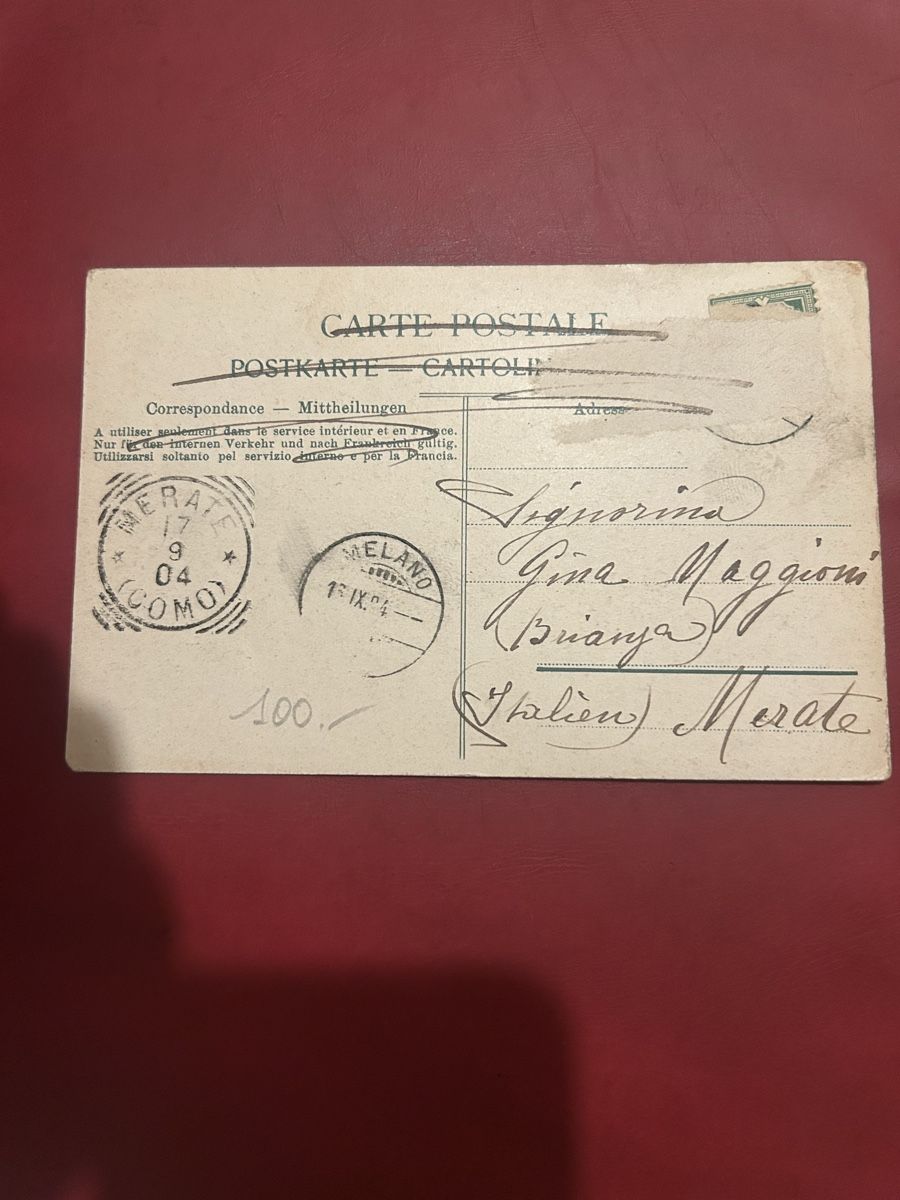 CARTE POSTALE
POSTKARTE — CARTOLIN
Correspondance — Mittheilungen
A utiliser seulement dans le service intérieur et en France.
Nur für den internen Verkehr und nach Frankreich gültig.
Utilizzarsi soltanto pel servizio interno e per la Francia.
Adress
MERATE
17
9
04
(COMO)
MELANO
IX.04
100.-
Signorina
Gina Maggioni
(Brianza)
(Italien) Merate